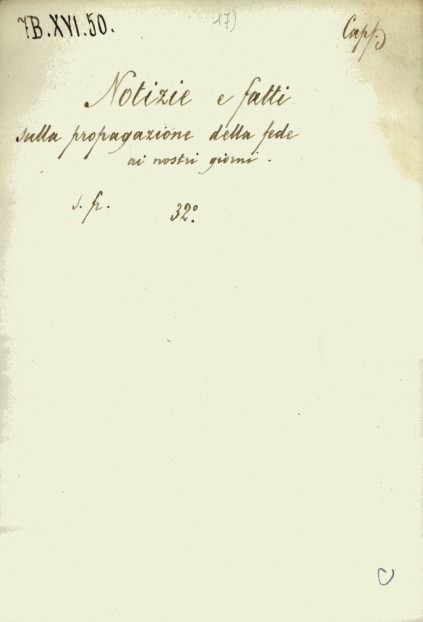 7B.XVI.50.
17)
Notizie e fatti
sulla propagazione della fede
ai nostri giorni.
32º